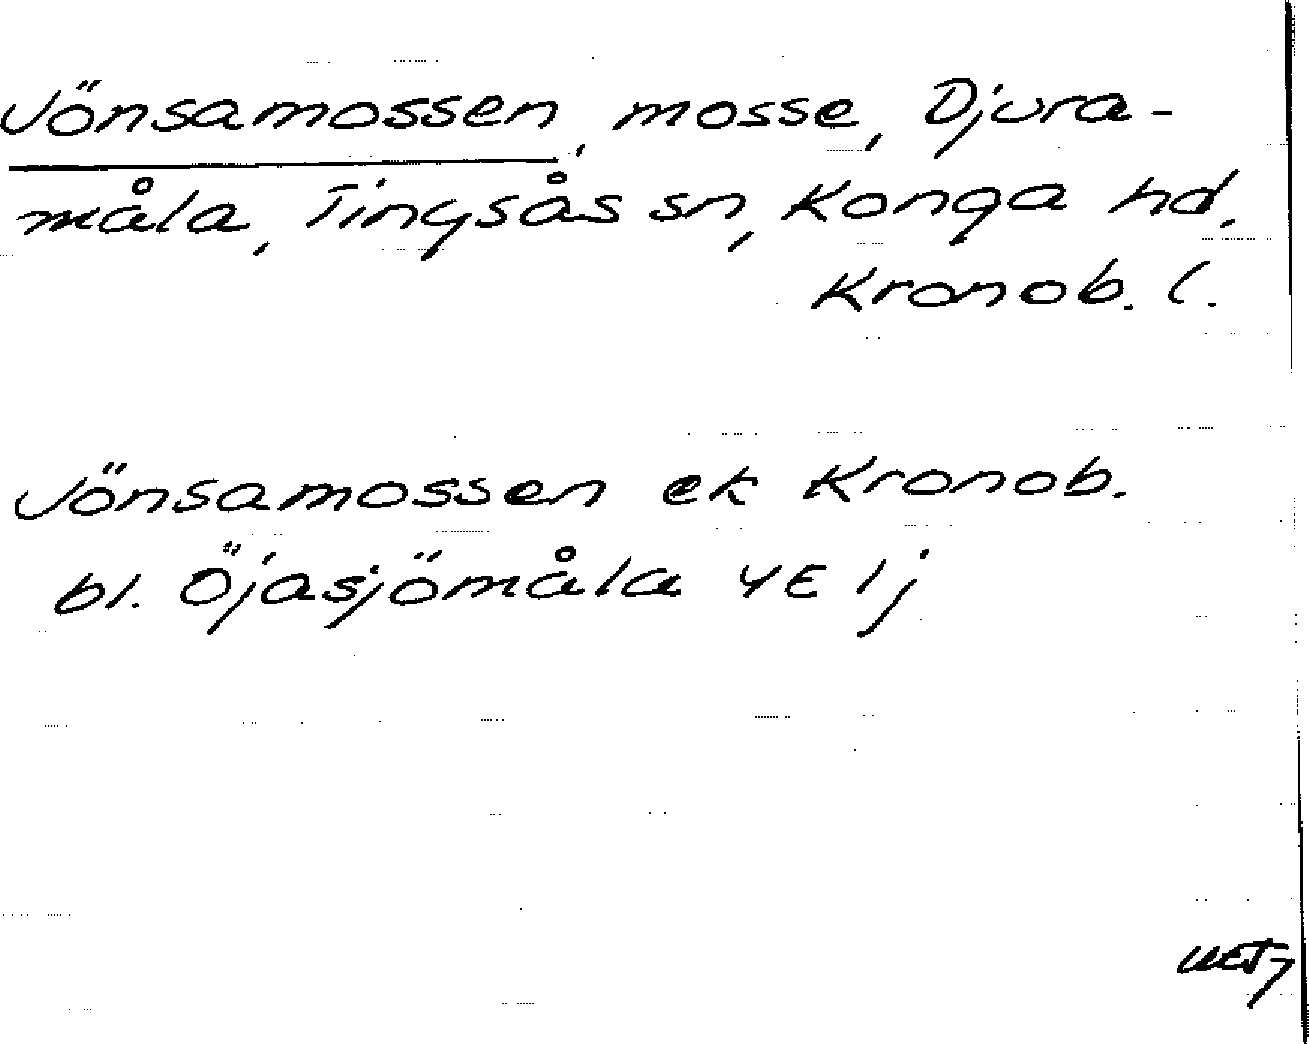 Jönsamossen, mosse, Djura-
måla, Tingsås sn, Konga hd,
Kronob. l.
Jönsamossen ek Kronob.
bl. Öjasjömåla 4E 1j